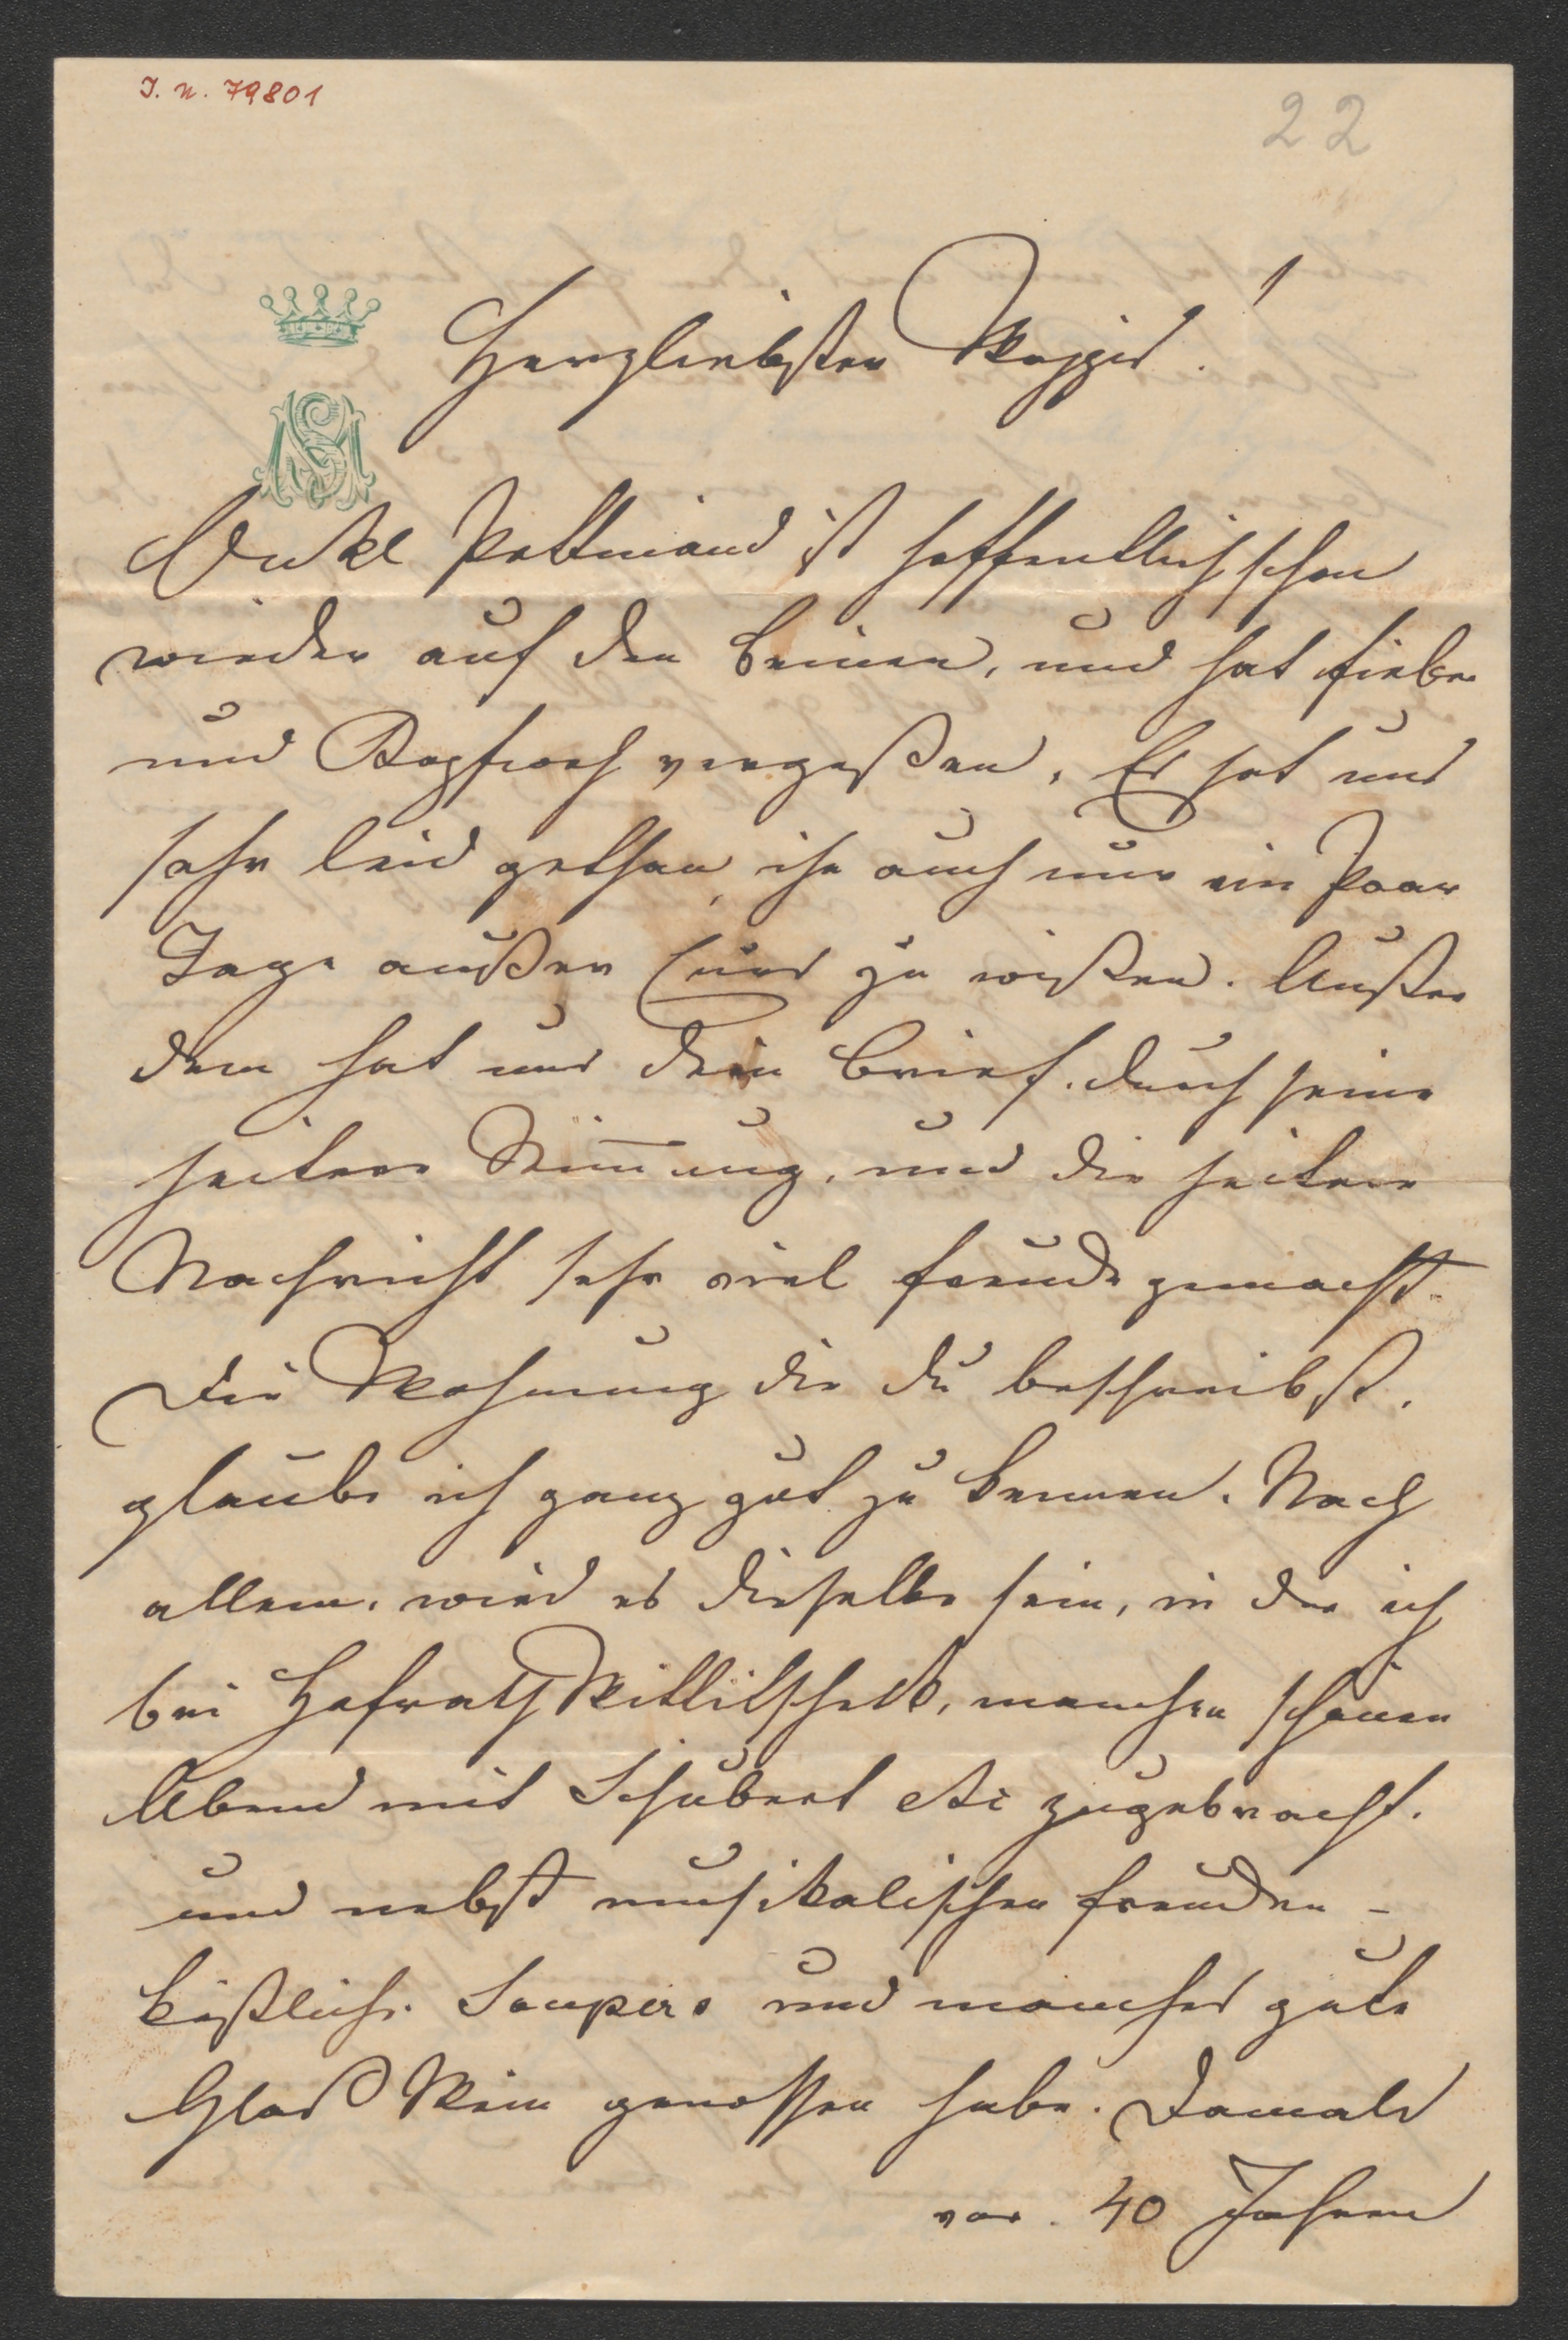 I. N. 79801
22
Herzliebster
Onkl ist hoffentlich schon
wieder auf den Beinen, und hat Fieber
und Kopfweh vergeßen. Es hat uns
sehr leid gethan, ihn auch nur ein Paar
Tage außer Curs zu wißen. Außer
dem hat uns Dein Brief durch seine
heitere Stim̄ung, und die heitere
Nachricht sehr viel Freude gemacht.
Die Wohnung die Du beschreibst,
glaube ich ganz gut zu kennen. Nach
allem, wird es dieselbe sein, in der ich
bei Hofrath Wittitschek, manchen schönen
Abend mit Schubert etc zugebracht.
und nebst musikalischen Freuden –
köstliche Soupers und manches gute
Glas Wein genossen habe. Damals
vor 40 Jahren